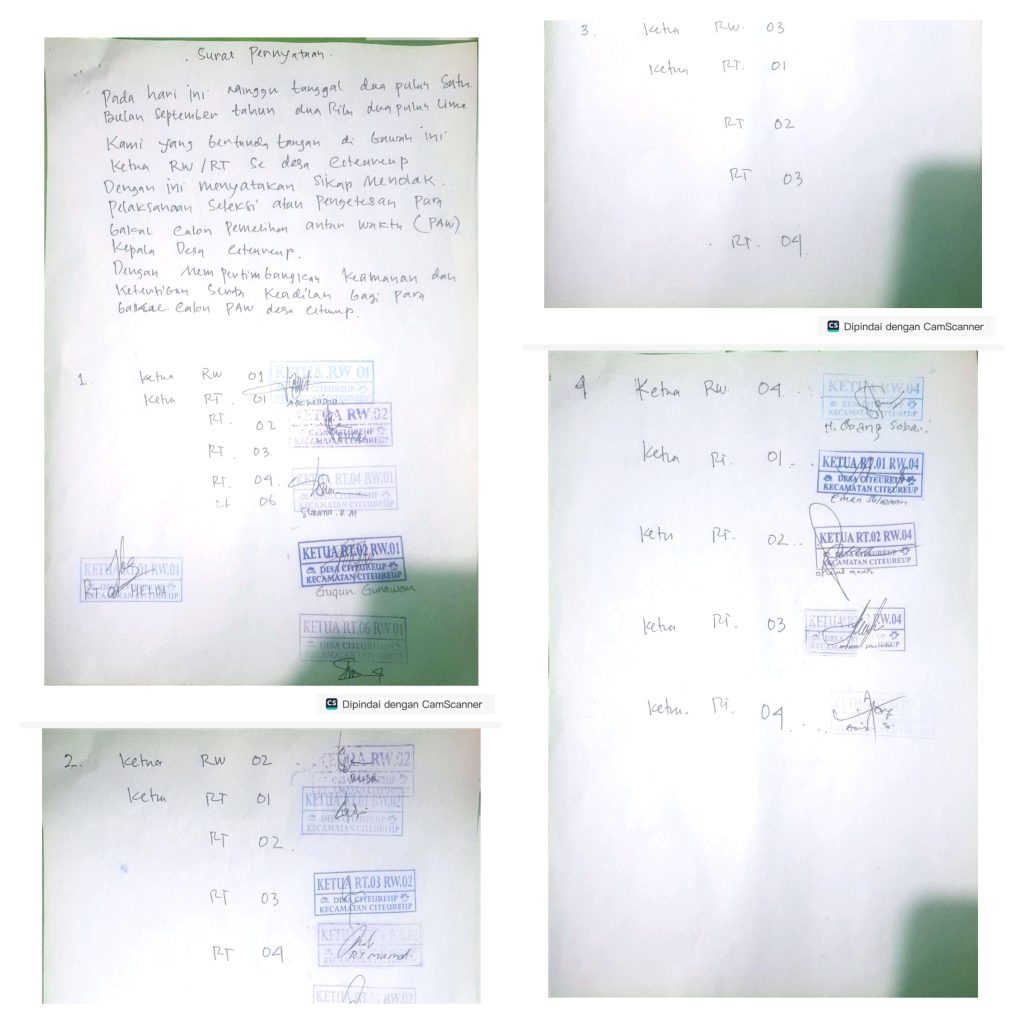 Surat Pernyataan.
Pada hari ini minggu tanggal dua puluh Satu
Bulan September tahun dua Ribu dua puluh Lima
Kami yang bertanda tangan di bawah ini
Ketua RW/RT Se desa Citeureup
Dengan ini menyatakan Sikap Menolak.
Pelaksanaan Seleksi atau Pengetesan Para
bakal Calon Pemelihan antar waktu (PAW)
Kepala Desa Citeureup.
Dengan Mempertimbangkan Keamanan dan
Ketertiban Serta Keadilan bagi Para
bakal Calon PAW desa
1. Ketua RW 01
KETUA RW 01
Ketua RT. 01
RT. 02
KETUA RW.02
DESA CITEUREUP
KECAMATAN CITEUREUP
RT. 03
RT. 04
KETUA RT.04 RW.01
KECAMATAN CITEUREUP
RT 06
KETUA RT.02 RW.01
DESA CITEUREUP
KECAMATAN CITEUREUP
Gugun Gunawan
RT 01 HELDA
KETUA RT.06 RW.01
DESA CITEUREUP
KECAMATAN CITEUREUP
CS Dipindai dengan CamScanner
2. Ketua RW 02
RW.02
Ketua RT 01
KETUA RT.01 RW.02
DESA CITEUREUP
KECAMATAN CITEUREUP
RT 02.
RT 03
KETUA RT.03 RW.02
DESA CITEUREUP
KECAMATAN CITEUREUP
RT 04.
KETUA RW.02
RT mamat
KETUA RT.05 RW.02
3. Ketua RW 03
Ketua RT. 01
RT 02
RT 03
RT. 04
CS Dipindai dengan CamScanner
4 Ketua RW 04...
KETUA RW.04
KECAMATAN CITEUREUP
Ketua RT. 01...
KETUA RT.01 RW.04
DESA CITEUREUP
KECAMATAN CITEUREUP
Ketua RT. 02...
KETUA RT.02 RW.04
DESA CITEUREUP
KECAMATAN CITEUREUP
Ketua RT. 03
KETUA RW.04
KECAMATAN CITEUREUP
Ketua. RT. 04...